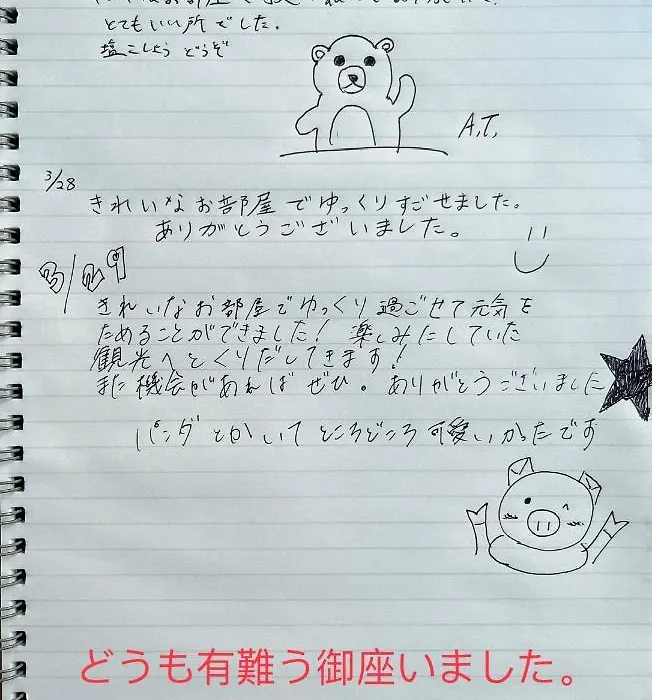 とてもいい所でした。
塩こしょう どうぞ
A.T.
3/28
きれいなお部屋でゆっくりすごせました。
ありがとうございました。
3/29
きれいなお部屋でゆっくり過ごせて元気を
ためることができました！ 楽しみにしていた
観光へとくりだしてきます！
また機会があればぜひ。ありがとうございました
パンダとかいてところどころ可愛いかったです
どうも有難う御座いました。